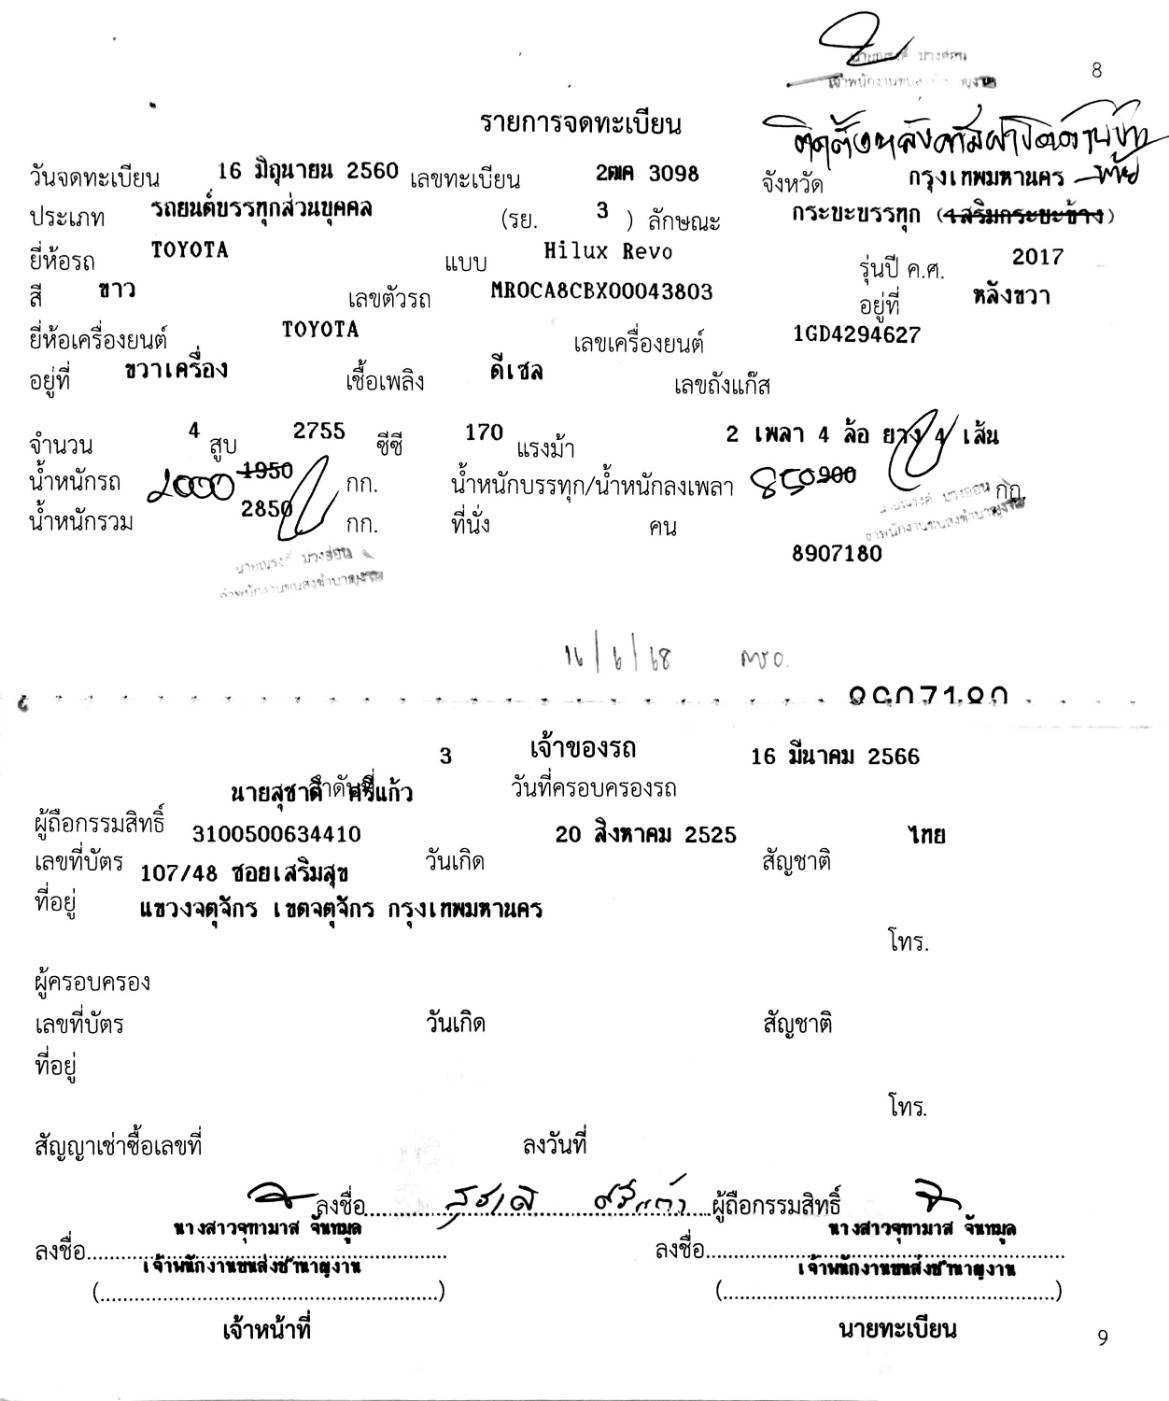 8
รายการจดทะเบียน
วันจดทะเบียน 16 มิถุนายน 2560 เลขทะเบียน 2ฒค 3098 จังหวัด กรุงเทพมหานคร
ประเภท รถยนต์บรรทุกส่วนบุคคล (รย. 3 ) ลักษณะ กระบะบรรทุก (เสริมกระบะข้าง)
ยี่ห้อรถ TOYOTA แบบ Hilux Revo รุ่นปี ค.ศ. 2017
สี ขาว เลขตัวรถ MR0CA8CBX00043803 อยู่ที่ หลังขวา
ยี่ห้อเครื่องยนต์ TOYOTA เลขเครื่องยนต์ 1GD4294627
อยู่ที่ ขวาเครื่อง เชื้อเพลิง ดีเซล เลขถังแก๊ส
จำนวน 4 สูบ 2755 ซีซี 170 แรงม้า 2 เพลา 4 ล้อ ยาง 4 เส้น
น้ำหนักรถ 2000 1950 กก. น้ำหนักบรรทุก/น้ำหนักลงเพลา 850 900 กก.
น้ำหนักรวม 2850 กก. ที่นั่ง คน
8907180
16/6/68
เจ้าของรถ
ลำดับที่ 3 วันที่ครอบครองรถ 16 มีนาคม 2566
ผู้ถือกรรมสิทธิ์ นายสุชาติ ศรีแก้ว
เลขที่บัตร 3100500634410 วันเกิด 20 สิงหาคม 2525 สัญชาติ ไทย
ที่อยู่ 107/48 ซอยเสริมสุข
แขวงจตุจักร เขตจตุจักร กรุงเทพมหานคร
โทร.
ผู้ครอบครอง
เลขที่บัตร วันเกิด สัญชาติ
ที่อยู่
โทร.
สัญญาเช่าซื้อเลขที่ ลงวันที่
ลงชื่อ สุชาติ ศรีแก้ว ผู้ถือกรรมสิทธิ์
นางสาวจุฑามาส จันทมูล นางสาวจุฑามาส จันทมูล
ลงชื่อ ลงชื่อ
เจ้าพนักงานขนส่งชำนาญงาน เจ้าพนักงานขนส่งชำนาญงาน
(........................) (........................)
เจ้าหน้าที่ นายทะเบียน
9